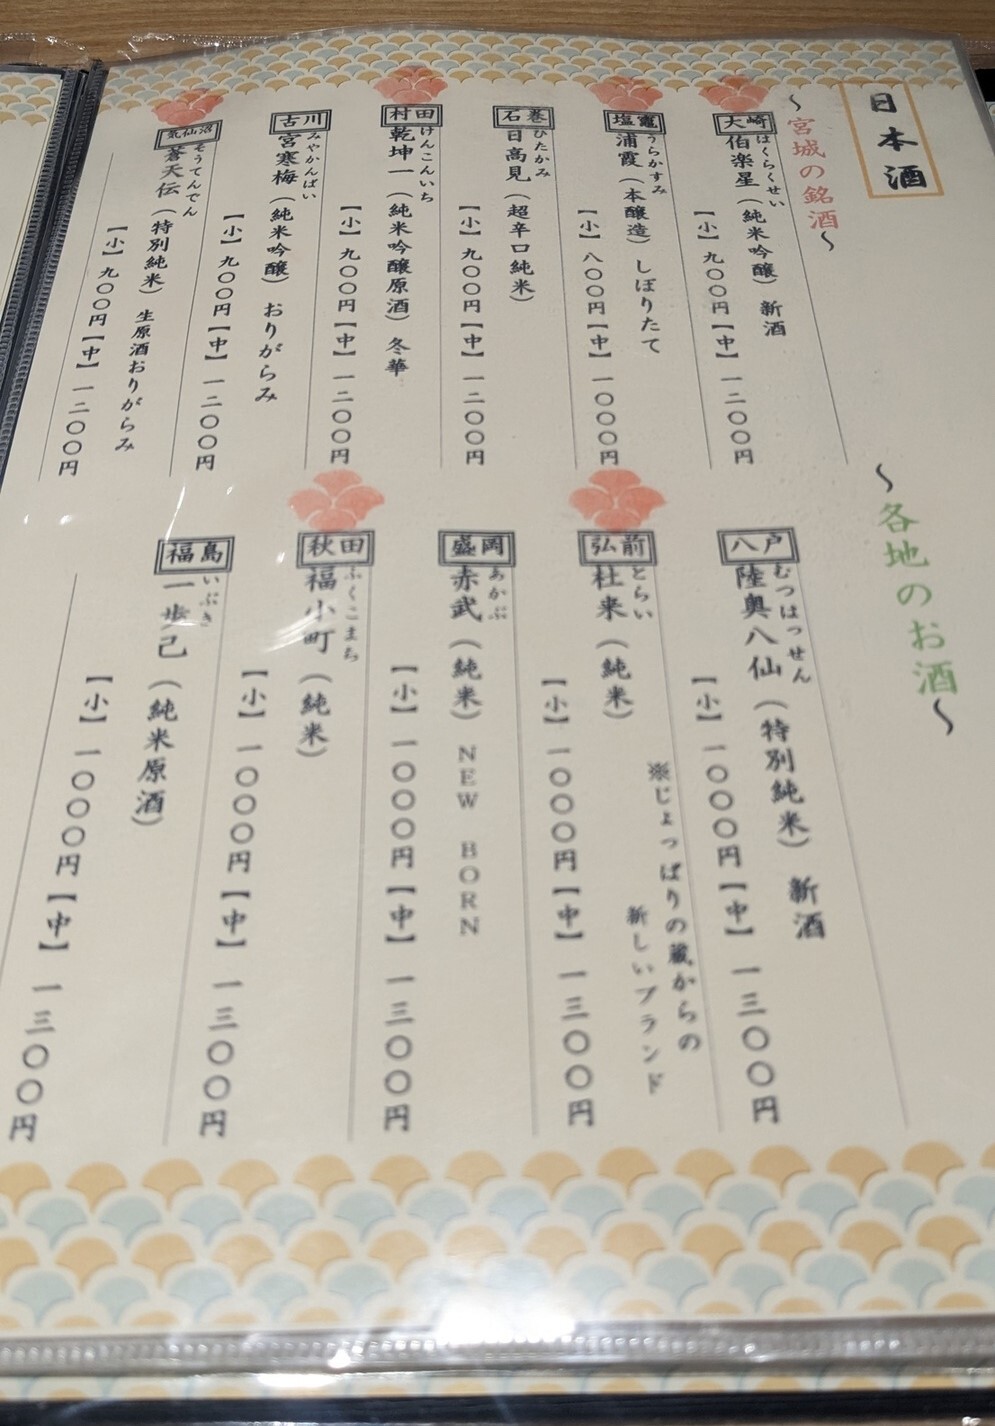 日本酒
～宮城の銘酒～
大崎
はくらくせい
伯楽星（純米吟醸）　新酒
【小】九〇〇円【中】一二〇〇円
塩竈
うらかすみ
浦霞（本醸造）　しぼりたて
【小】八〇〇円【中】一〇〇〇円
石巻
ひたかみ
日高見（超辛口純米）
【小】九〇〇円【中】一二〇〇円
村田
けんこんいち
乾坤一（純米吟醸原酒）冬華
【小】九〇〇円【中】一二〇〇円
古川
みやかんばい
宮寒梅（純米吟醸）　おりがらみ
【小】九〇〇円【中】一二〇〇円
気仙沼
そうてんでん
蒼天伝（特別純米）　生原酒おりがらみ
【小】九〇〇円【中】一二〇〇円
～各地のお酒～
八戸
むつはっせん
陸奥八仙（特別純米）　新酒
【小】一〇〇〇円【中】一三〇〇円
弘前
とらい
杜来（純米）
※じょっぱりの蔵からの
新しいブランド
【小】一〇〇〇円【中】一三〇〇円
盛岡
あかぶ
赤武（純米）NEW BORN
【小】一〇〇〇円【中】一三〇〇円
秋田
ふくこまち
福小町（純米）
【小】一〇〇〇円【中】一三〇〇円
福島
いぶき
一歩己（純米原酒）
【小】一〇〇〇円【中】一三〇〇円